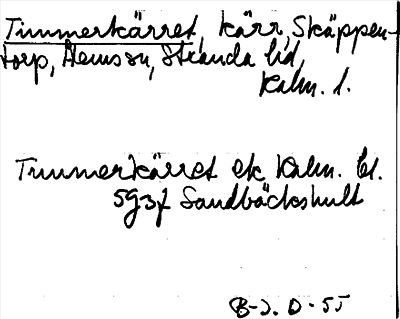 Timmerkärret, kärr, Skäppen-
torp, Ålemsn, Stranda hd,
Kalm. l.
Timmerkärret ek Kalm. bl.
5937 Sandbäckshult
B-J. D-55